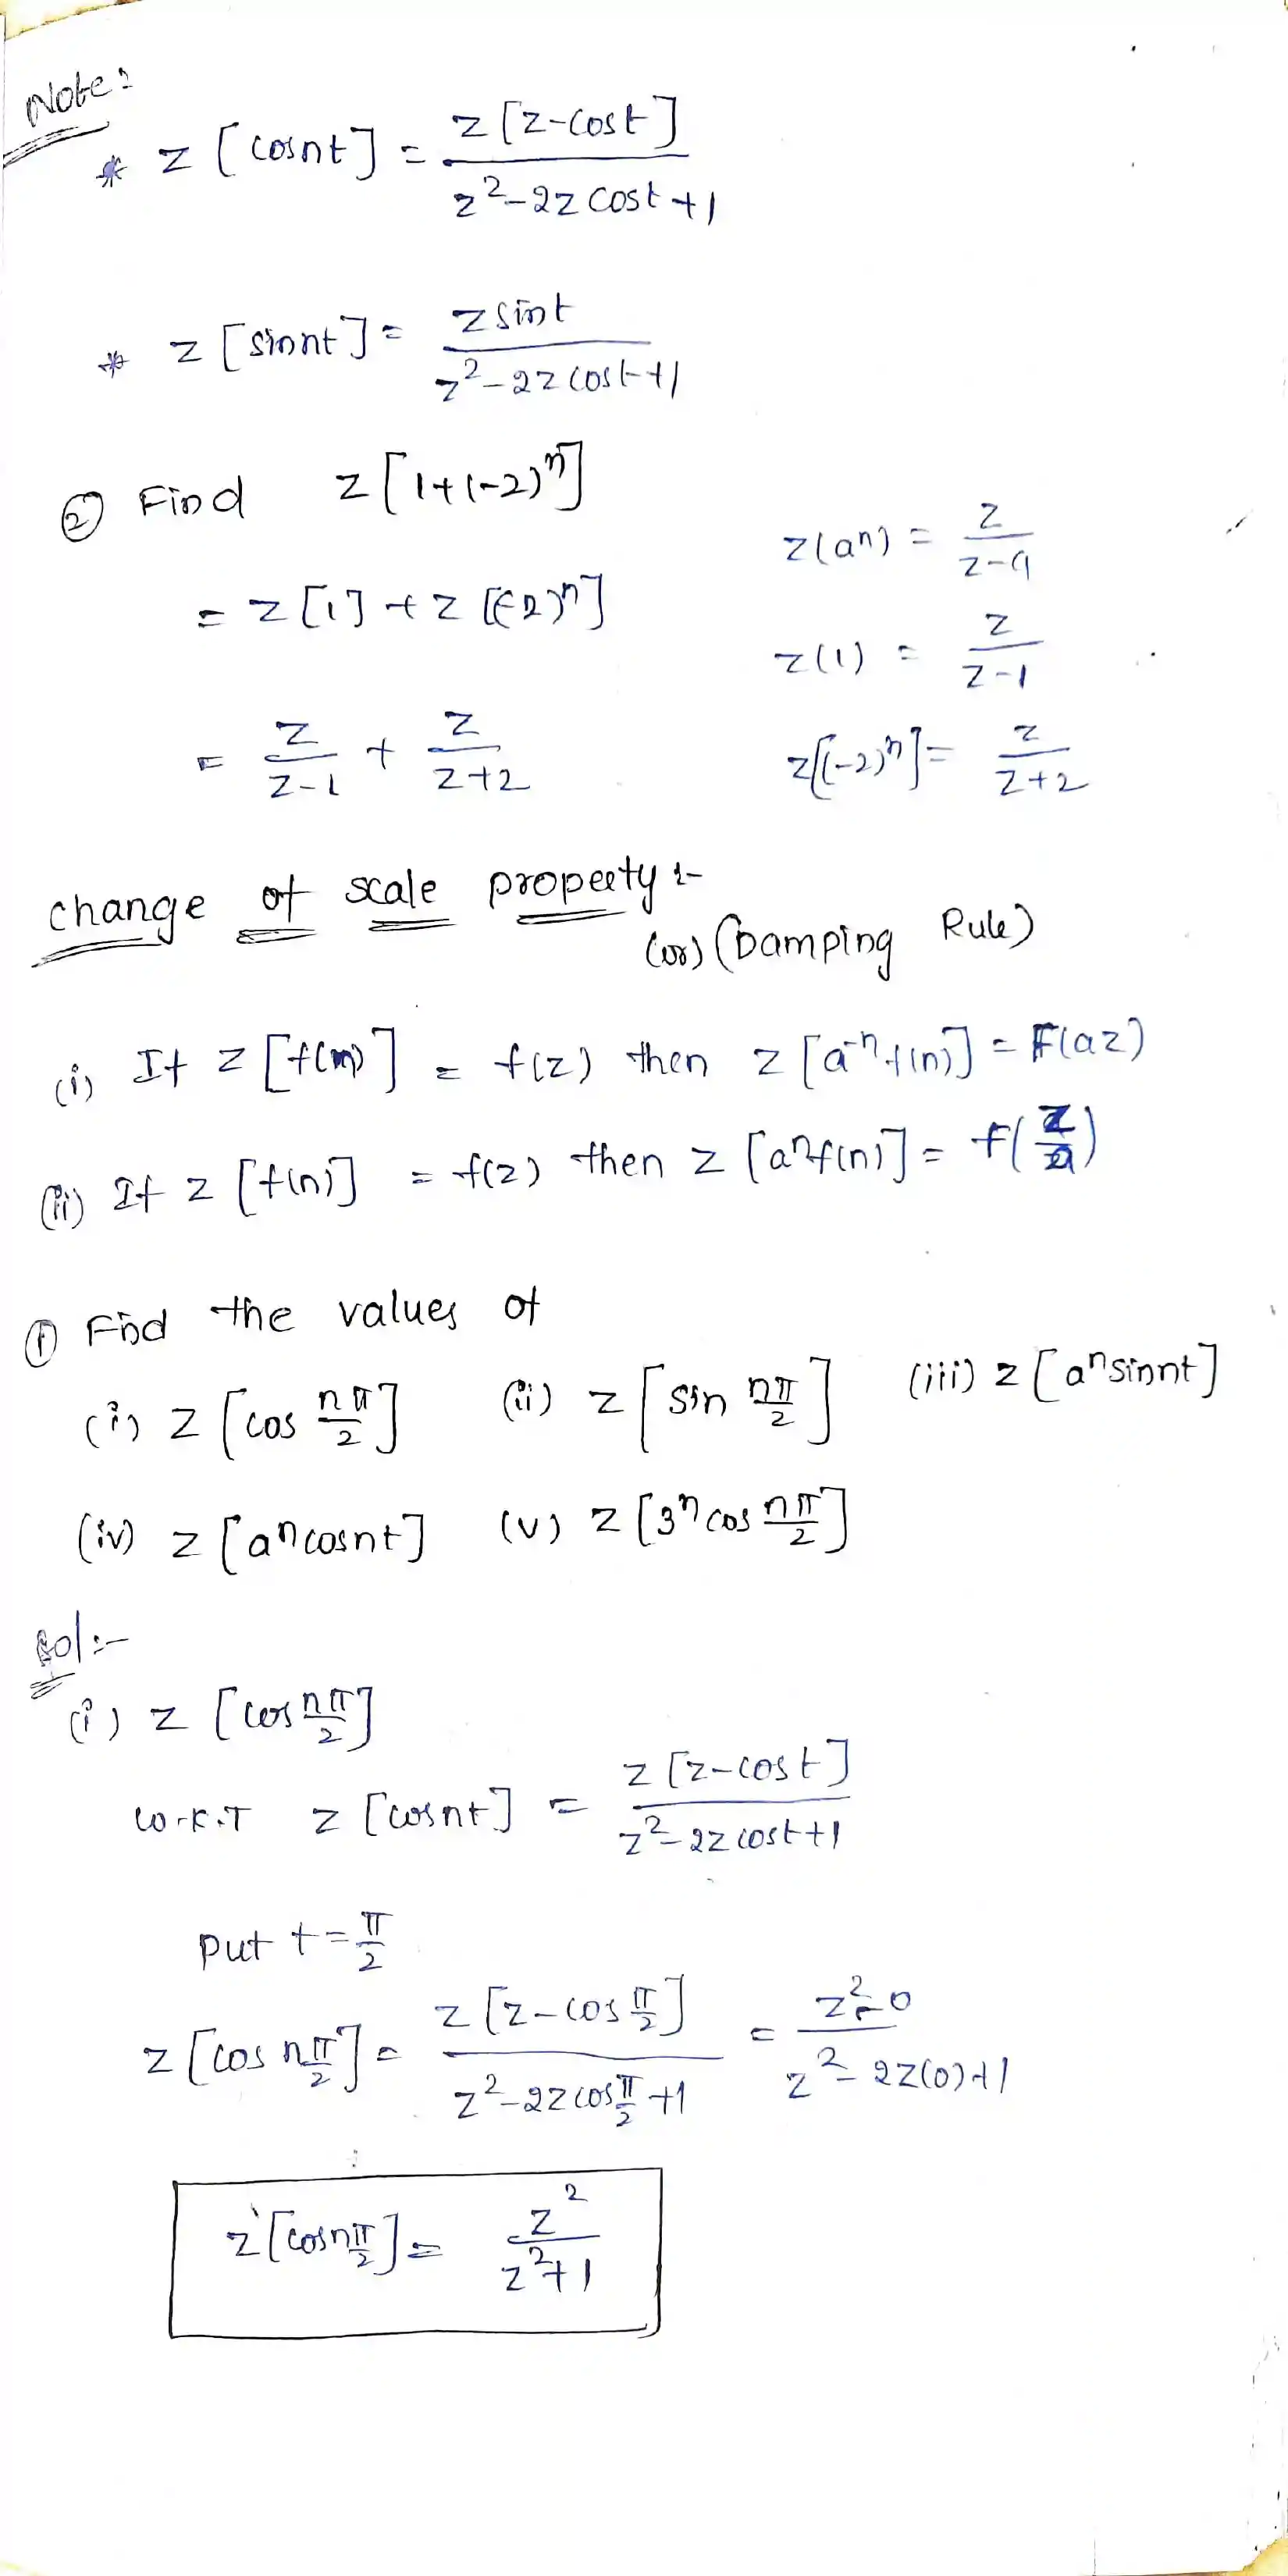 Note:
* z [cosnt] = z[z-cost] / z²-2z cost+1
* z [sinnt] = z sint / z²-2z cost+1
② Find z[1+(-2)ⁿ]
z(aⁿ) = z / z-a
= z[1] + z[(-2)ⁿ]
z(1) = z / z-1
= z / z-1 + z / z+2
z[(-2)ⁿ] = z / z+2
change of scale property :-
(or) (Damping Rule)
(i) If z [f(n)] = f(z) then z [a⁻ⁿf(n)] = F(az)
(ii) If z [f(n)] = f(z) then z [aⁿf(n)] = f(z/a)
① Find the values of
(i) z [cos nπ/2] (ii) z [sin nπ/2] (iii) z [aⁿsinnt]
(iv) z [aⁿcosnt] (v) z [3ⁿcos nπ/2]
Sol:-
(i) z [cos nπ/2]
W.K.T z [cosnt] = z [z-cost] / z²-2z cost+1
put t = π/2
z [cos nπ/2] = z [z-cos π/2] / z²-2z cos π/2 +1 = z²-0 / z²-2z(0)+1
z [cosnπ/2] = z² / z²+1